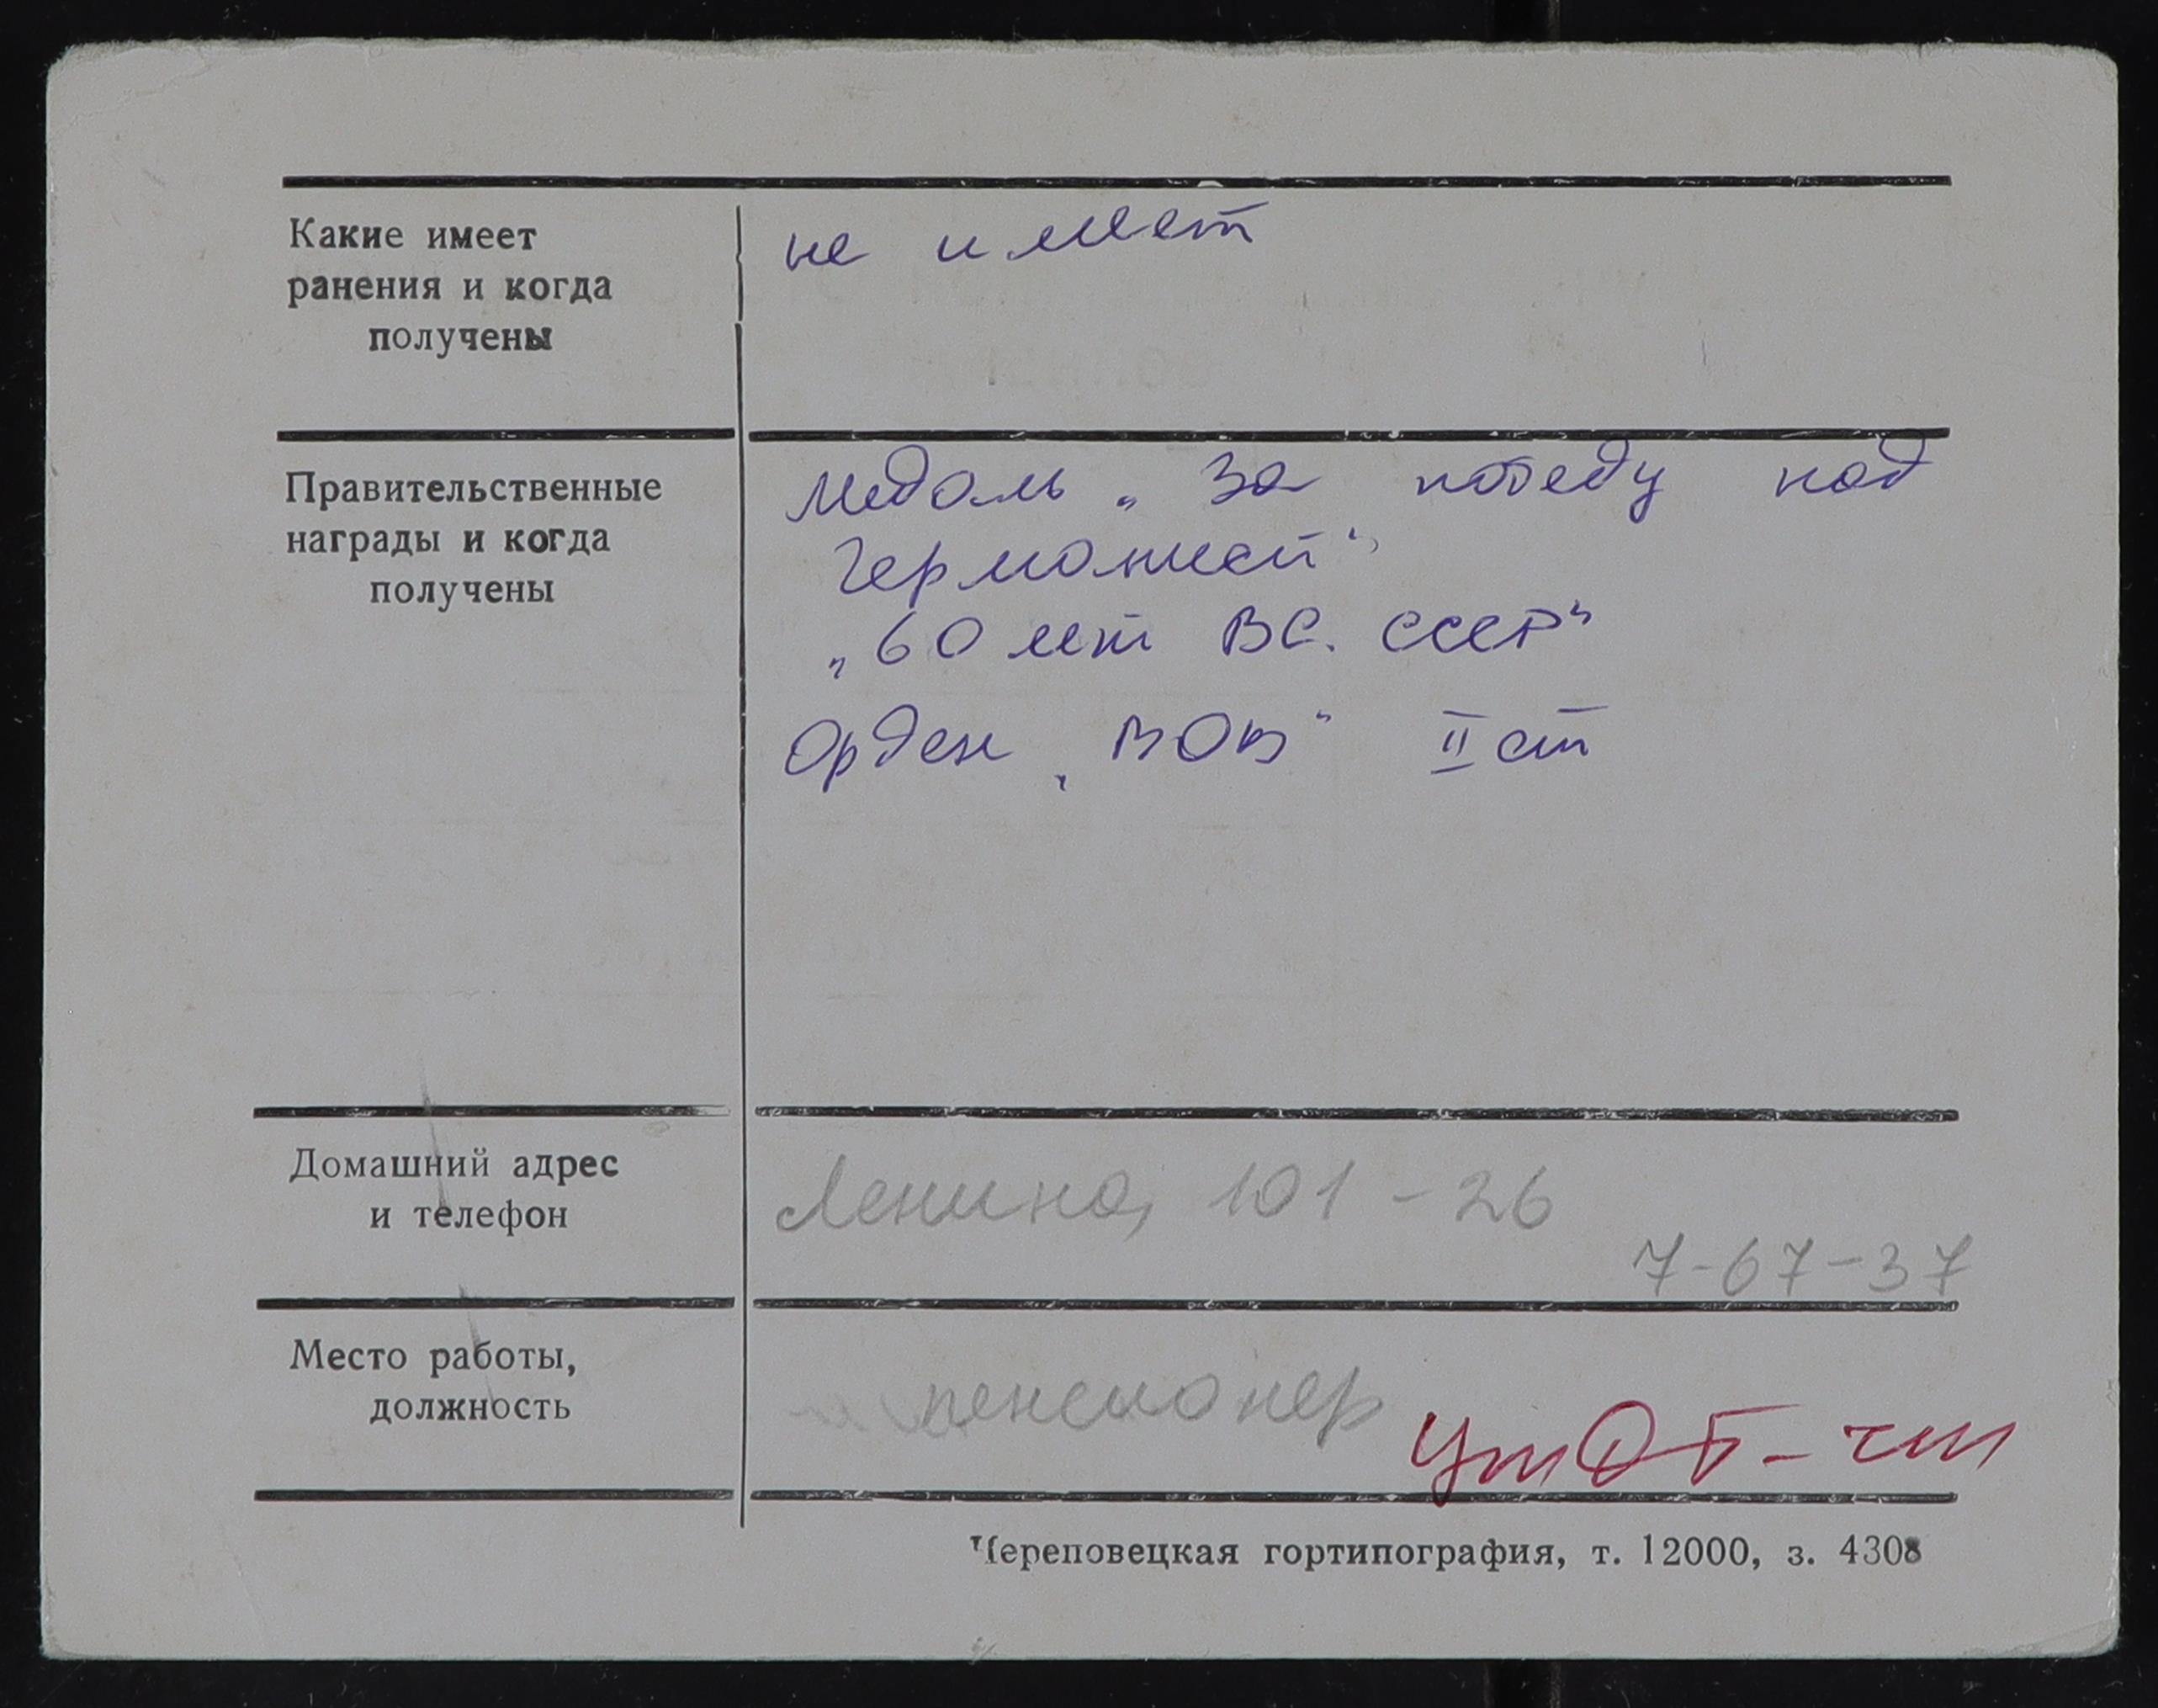 Какие имеет
ранения и когда
получены
не имеет
Правительственные
награды и когда
получены
Медаль „За победу над
Германией“
„60 лет ВС. СССР“
Орден „ВОВ“ II ст
Домашний адрес
и телефон
Ленина, 101 - 26
7-67-37
Место работы,
должность
пенсионер
Череповецкая гортипография, т. 12000, з. 4308